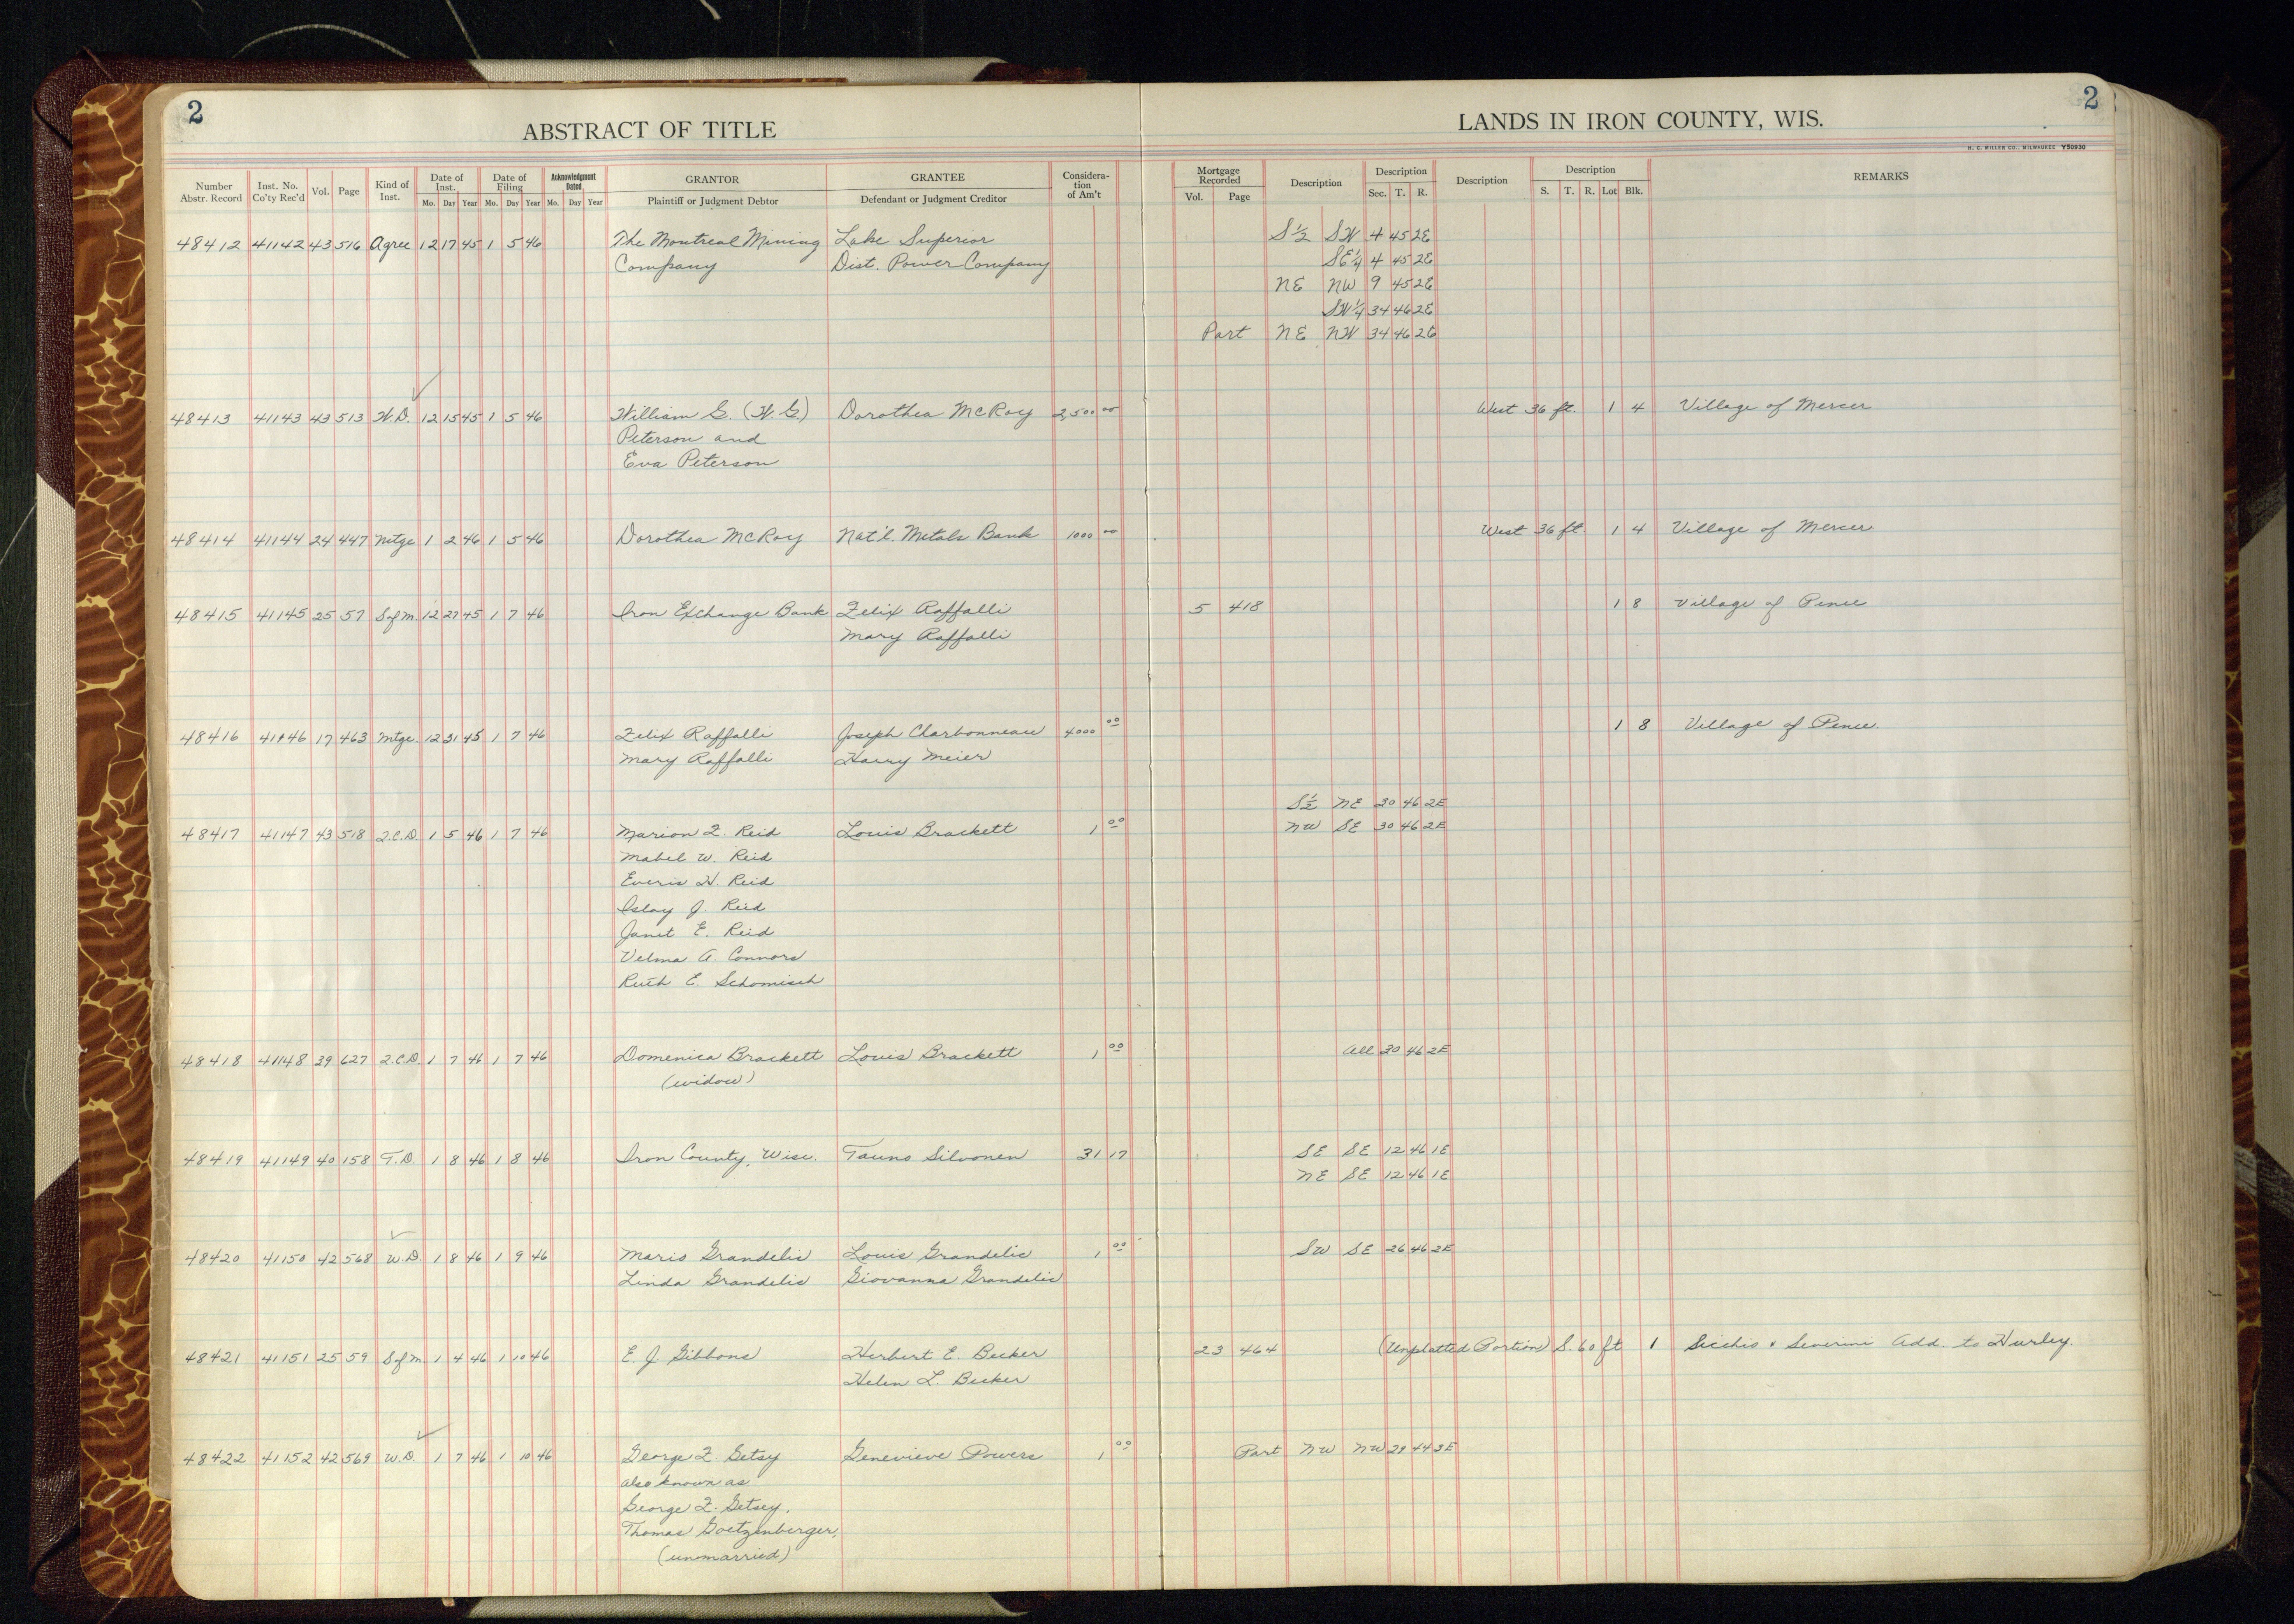 2
2
ABSTRACT OF TITLE
LANDS IN IRON COUNTY, WIS.
H. C. MILLER CO., MILWAUKEE Y50930
Number Abstr. Record Inst. No. Co'ty Rec'd Vol. Page Kind of Inst. Date of Inst. Mo. Day Year Date of Filing Mo. Day Year Acknowledgment Dated Mo. Day Year GRANTOR Plaintiff or Judgment Debtor GRANTEE Defendant or Judgment Creditor Considera-tion of Am't Mortgage Recorded Vol. Page Description Description Sec. T. R. Description Description S. T. R. Lot Blk. REMARKS
48412 41142 43 516 Agree 12 17 45 1 5 46 The Montreal Mining Lake Superior S½ SW 4 45 2E
Company Dist. Power Company SE¼ 4 45 2E
NE NW 9 45 2E
SW¼ 34 46 2E
Part NE NW 34 46 2E
48413 41143 43 513 W.D. 12 15 45 1 5 46 William G. (W.G.) Dorothea McRoy 2,500 00 West 36 ft. 1 4 Village of Mercer
Peterson and
Eva Peterson
48414 41144 24 447 Mtge 1 2 46 1 5 46 Dorothea McRoy Nat'l. Metals Bank 1000 00 West 36 ft. 1 4 Village of Mercer
48415 41145 25 57 S of M. 12 27 45 1 7 46 Iron Exchange Bank Felix Raffalli 5 418 1 8 Village of Pence
Mary Raffalli
48416 41146 17 463 Mtge. 12 31 45 1 7 46 Felix Raffalli Joseph Charbonneau 4000 00 1 8 Village of Pence.
Mary Raffalli Harry Meier
S½ NE 30 46 2E
48417 41147 43 518 Q.C.D. 1 5 46 1 7 46 Marion F. Reid Louis Brackett 1 00 NW SE 30 46 2E
Mabel W. Reid
Everis H. Reid
Islay J. Reid
Janet E. Reid
Velma A. Connors
Ruth E. Schomisch
48418 41148 39 627 Q.C.D. 1 7 46 1 7 46 Domenica Brackett Louis Brackett 1 00 All 30 46 2E
(widow)
48419 41149 40 158 T.D. 1 8 46 1 8 46 Iron County, Wisc. Tauno Silvonen 31 17 SE SE 12 46 1E
NE SE 12 46 1E
48420 41150 42 568 W.D. 1 8 46 1 9 46 Mario Grandelis Louis Grandelis 1 00 SW SE 26 46 2E
Linda Grandelis Giovanna Grandelis
48421 41151 25 59 S of M. 1 4 46 1 10 46 E. J. Gibbons Herbert E. Becker 23 464 (Unplatted Portion) S. 60 ft 1 Sicchio & Severini Add. to Hurley.
Helen L. Becker
48422 41152 42 569 W.D. 1 7 46 1 10 46 George F. Getsy Genevieve Powers 1 00 Part NW NW 29 44 3E
also known as
George F. Getsey,
Thomas Goetzenberger,
(unmarried)